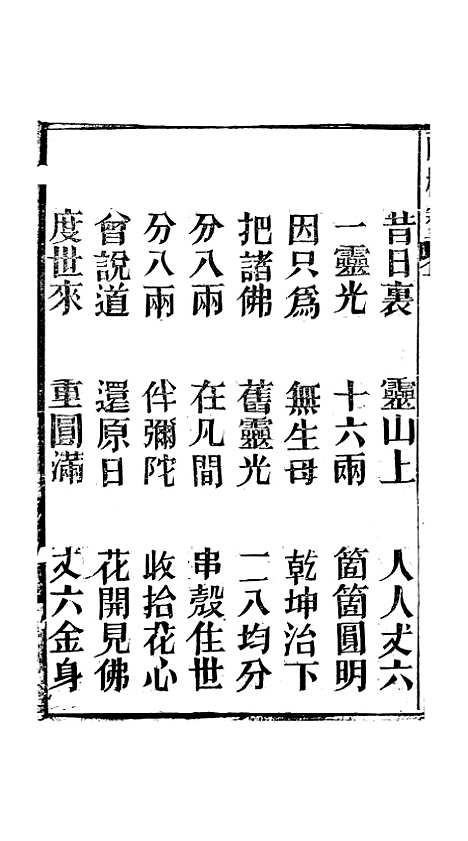 昔日裏 靈山上 人人丈六
一靈光 十六兩 箇箇圓明
因只爲 無生母 乾坤治下
把諸佛 舊靈光 二八均分
分八兩 在凡間 串殼住世
分八兩 伴彌陀 收拾花心
曾說道 還原日 花開見佛
度世來 重圓滿 丈六金身